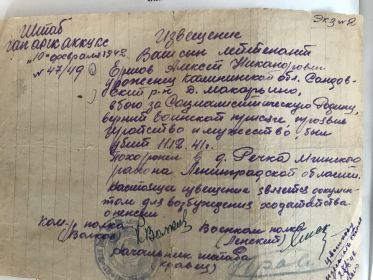 Экз №2
Штаб
Извещение
"10" февраля 1942
Ваш сын лейтенант
№ 47/49
Ершов Алексей Никанорович
уроженец Калининской обл. Сандов-
ский р-н д. Макарьино,
в бою за Социалистическую Родину,
верный воинской присяге, проявив
геройство и мужество, был
убит 11.12.41г.
Похоронен в д. Речка Мгинского
района Ленинградской области.
Настоящее извещение является докумен-
том для возбуждения ходатайства
о пенсии.
Ком-р полка
Военком полка
(Волков)
(Ленский)
Начальник штаба
(Кравец)